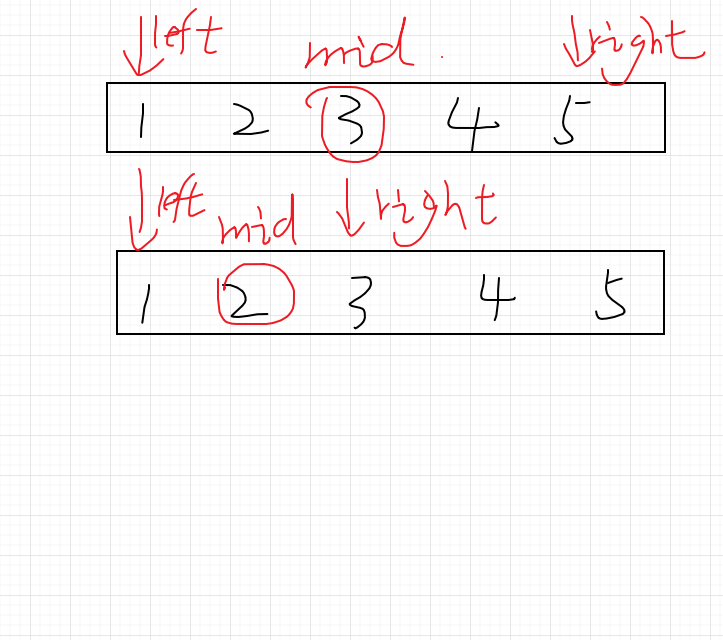 left mid right
1 2 3 4 5
left mid right
1 2 3 4 5